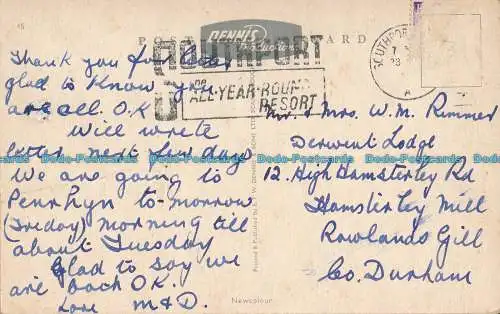 45
POST CARD
DENNIS
Productions
SOUTHPORT
ALL-YEAR-ROUND
RESORT
SOUTHPORT
A
Thank you for letter
glad to Know you
are all O.K
Will write
letter next few days
We are going to
Penrhyn to-morrow
(Friday) morning till
about Tuesday
Glad to say we
are both OK.
Love M & D.
Mr. & Mrs. W. M. Rimmer
Derwent Lodge
12. High Hamsterley Rd
Hamsterley Mill
Rowlands Gill
Co. Durham
Newcolour
Dodo-Postcards Dodo-Postcards Dodo-Postcards Dodo-Postcards Dodo-Postcards